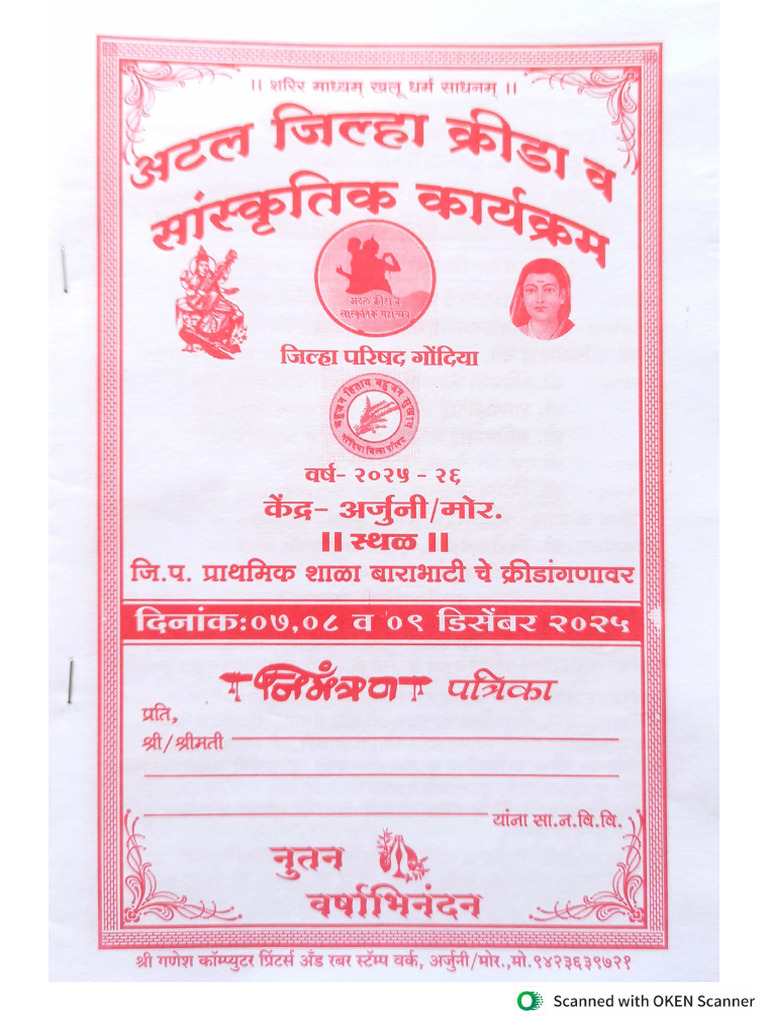 || शरिर माध्यम् खलू धर्म साधनम् ||
अटल जिल्हा क्रीडा व
सांस्कृतिक कार्यक्रम
अटल क्रीडा व
सांस्कृतिक महोत्सव
जिल्हा परिषद गोंदिया
बहुजन हिताय बहुजन सुखाय
गोंदिया जिल्हा परिषद
वर्ष- २०२५ - २६
केंद्र- अर्जुनी/मोर.
|| स्थळ ||
जि.प. प्राथमिक शाळा बाराभाटी चे क्रीडांगणावर
दिनांक:०७,०८ व ०९ डिसेंबर २०२५
निमंत्रण पत्रिका
प्रति,
श्री/श्रीमती
यांना सा.न.वि.वि.
नुतन
वर्षाभिनंदन
श्री गणेश कॉम्प्युटर प्रिंटर्स अँड रबर स्टॅम्प वर्क, अर्जुनी/मोर.,मो.९४२३६३९७२१
Scanned with OKEN Scanner